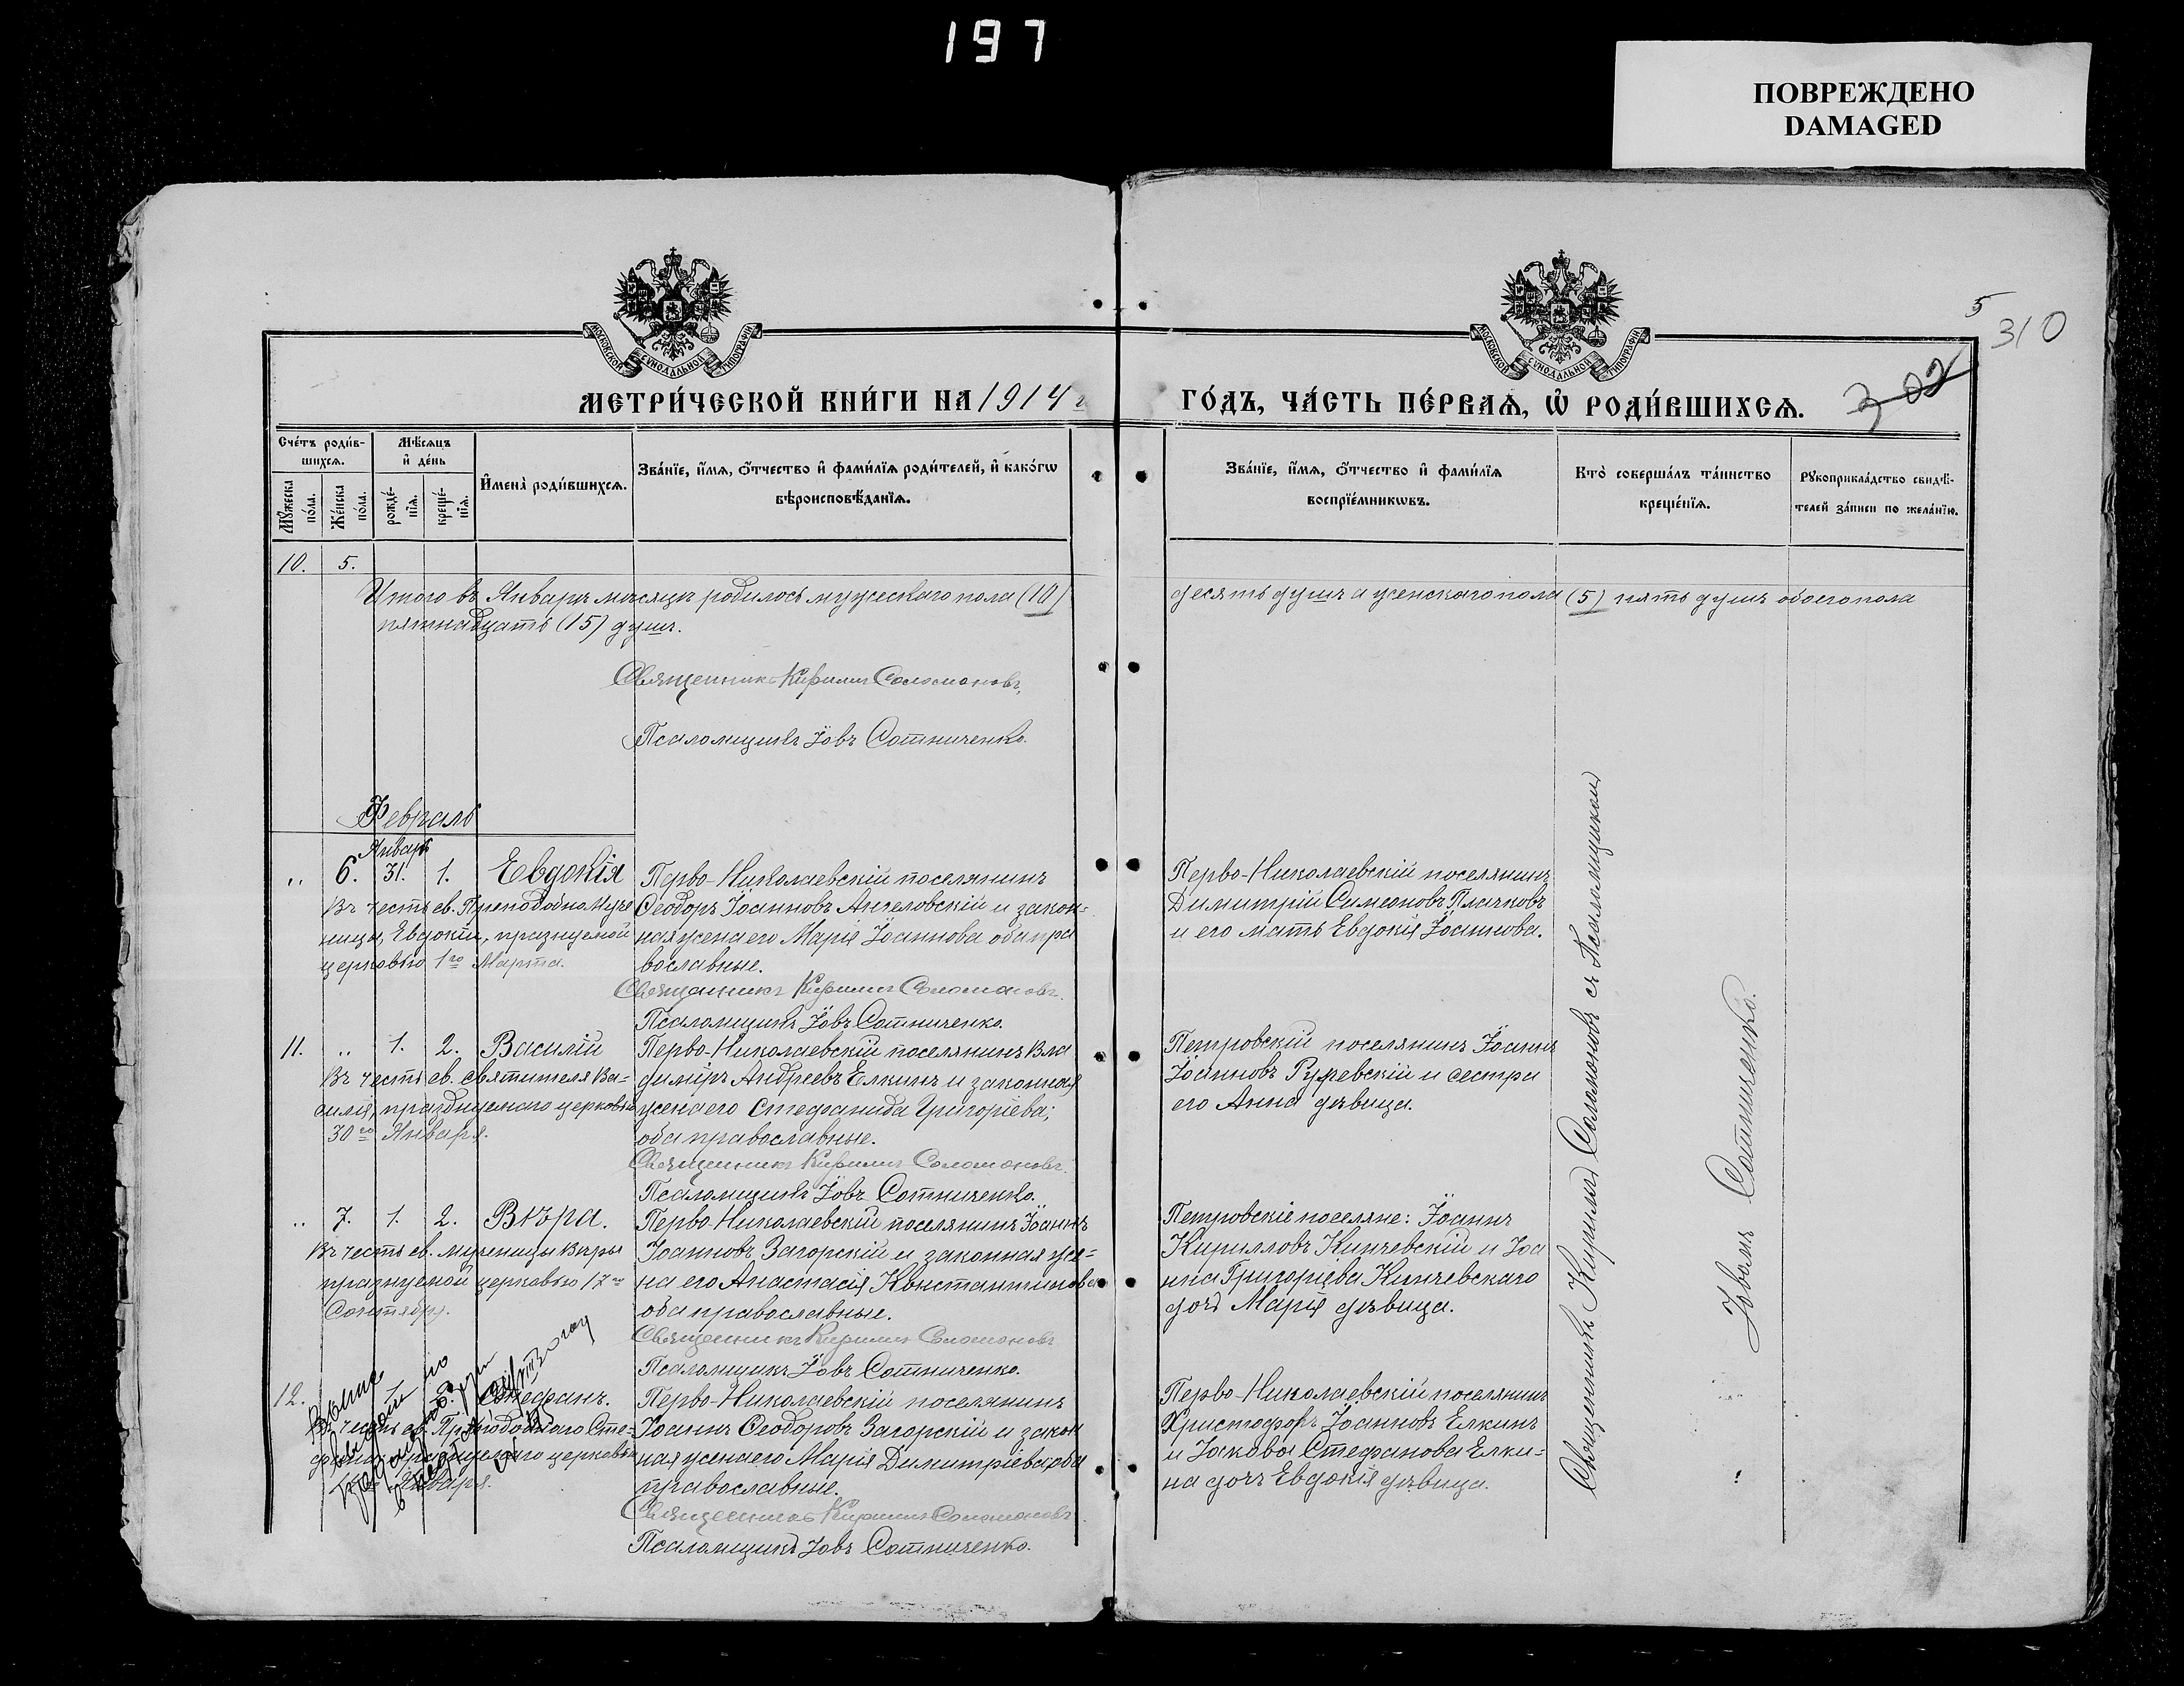 197
ПОВРЕЖДЕНО
DAMAGED
МОСКОВСКОЙ СѴНОДАЛЬНОЙ ТИПОГРАФІИ
МОСКОВСКОЙ СѴНОДАЛЬНОЙ ТИПОГРАФІИ
5
310
302
МЕТРИ́ЧЕСКОЙ КНИ́ГИ НА 1914 г
ГО́ДЪ, ЧА́СТЬ ПЕ́РВАѦ, Ѡ҆ РОДИ́ВШИХСѦ.
Сче́тъ роди́в-
шихсѧ.
Мѣ́сѧцъ
и҆ де́нь
Мꙋ́жеска
по́ла.
Же́нска
по́ла.
рожде́-
нїѧ.
креще́-
нїѧ.
И҆мена̀ роди́вшихсѧ.
Зва́нїе, и҆́мѧ, ѻ҆́тчество и҆ фами́лїѧ роди́телей, и҆ како́гѡ
вѣроисповѣ́данїѧ.
Зва́нїе, и҆́мѧ, ѻ҆́тчество и҆ фами́лїѧ
воспрїе́мникѡвъ.
Кто̀ соверша́лъ та́инство
креще́нїѧ.
Рꙋкоприкла́дство свидѣ́-
телей за́писи по жела́нїю.
10. 5.
Итого въ Январѣ мѣсяцѣ родилось мужескаго пола (10)
десять душъ а женскаго пола (5) пять душъ обоего пола
пятнадцать (15) душъ.
Священникъ Кириллъ Соломоновъ,
Псаломщикъ Іовъ Сотниченко.
Февраль
Январь
" 6. 31. 1. Евдокія
Въ честь св. Преподобно-Муче
ницы, Евдокіи, празнуемой
церковью 1го Марта.
Перво-Николаевскій поселянинъ
Ѳеодоръ Іоанновъ Ангеловскій и закон=
ная жена его Марія Іоаннова оба пра
вославные.
Священникъ Кириллъ Соломоновъ.
Псаломщикъ Іовъ Сотниченко.
Перво-Николаевскій поселянинъ
Димитрій Симеоновъ Плачковъ
и его мать Евдокія Іоаннова.
11. " 1. 2. Василій
Въ честь св. святителя Ва=
силія, празднуемаго церковью
30го Января.
Перво-Николаевскій поселянинъ Вла
диміръ Андреевъ Елкинъ и законная
жена его Стефанида Григоріева;
оба православные.
Священникъ Кириллъ Соломоновъ.
Псаломщикъ Іовъ Сотниченко.
Петровскій поселянинъ Іоаннъ
Іоанновъ Ружевскій и сестра
его Анна дѣвица.
" 7. 1. 2. Вѣра.
Въ честь св. мученицы Вѣры
празнуемой церковью 17го
Сентября.
Перво-Николаевскій поселянинъ Іоаннъ
Іоанновъ Загорскій и законная же=
на его Анастасія Константинова
оба православные.
Священникъ Кириллъ Соломоновъ
Псаломщикъ Іовъ Сотниченко.
Петровскіе поселяне: Іоаннъ
Кирилловъ Кинчевскій и Іоа
нна Григоріева Кинчевскаго
дочь Марія дѣвица.
12. 1. Стефанъ.
Въ честь св. Преподобнаго Сте=
фана празднуемаго церковью
Января.
Перво-Николаевскій поселянинъ
Іоаннъ Ѳеодоровъ Загорскій и закон
ная жена его Марія Димитріева, оба
православные.
Священникъ Кириллъ Соломоновъ.
Псаломщикъ Іовъ Сотниченко.
Перво-Николаевскій поселянинъ
Христофоръ Іоанновъ Елкинъ
и Іакова Стефанова Елки=
на дочь Евдокія дѣвица.
Священникъ Кириллъ Соломоновъ съ Псаломщикомъ
Іовомъ Сотниченко.